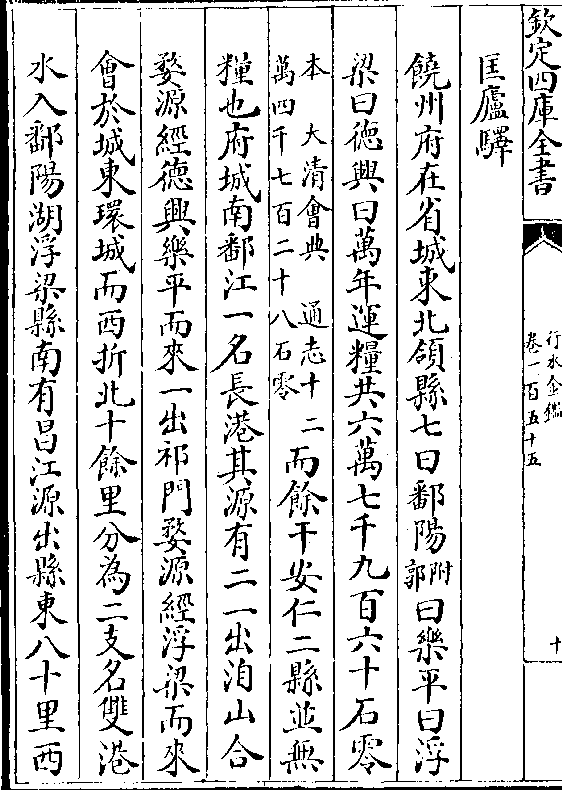 欽定四庫全書
行水金鑑
卷一百五十五
十
匡廬驛
饒州府在省城東北領縣七曰鄱陽附郭曰樂平曰浮
梁曰德興曰萬年運糧共六萬七千九百六十石零
本　大清會典　通志十二
萬四千七百二十八石零
而餘干安仁二縣並無
糧也府城南鄱江一名長港其源有二一出洎山合
婺源經德興樂平而來一出祁門婺源經浮梁而來
會於城東環城而西折北十餘里分為二支名雙港
水入鄱陽湖浮梁縣南有昌江源出縣東八十里西